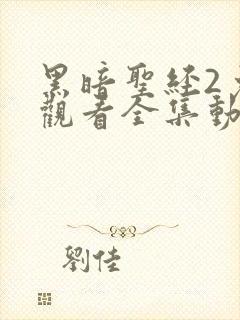 黑暗聖經2
觀看全集動
劉佳